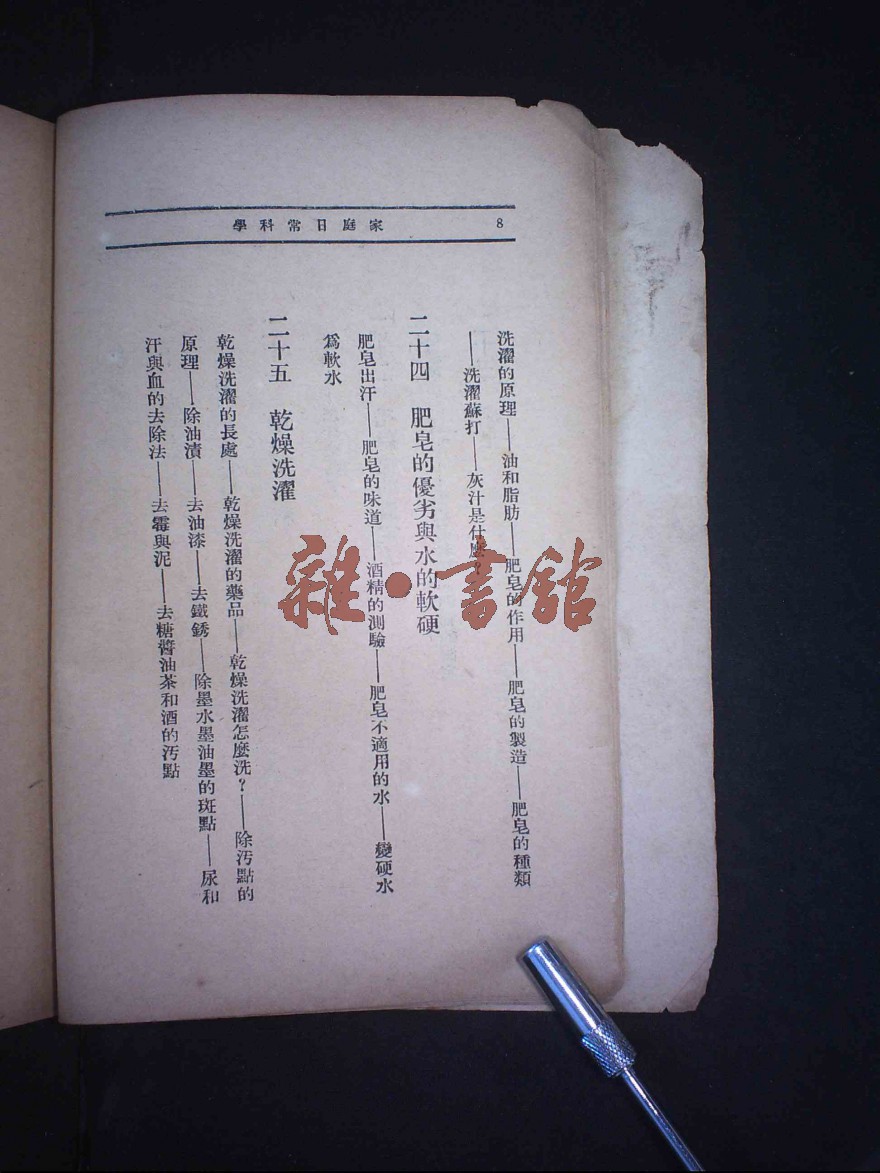 8 家庭日常科學
洗濯的原理——油和脂肪——肥皂的作用——肥皂的製造——肥皂的種類
——洗濯蘇打——灰汁是什麼？
二十四 肥皂的優劣與水的軟硬
肥皂出汗——肥皂的味道——酒精的測驗——肥皂不適用的水——變硬水
爲軟水
二十五 乾燥洗濯
乾燥洗濯的長處——乾燥洗濯的藥品——乾燥洗濯怎麼洗？——除汚點的
原理——除油漬——去油漆——去鐵銹——除墨水墨油墨的斑點——尿和
汗與血的去除法——去霉與泥——去糖醬油茶和酒的汚點
雜·書館